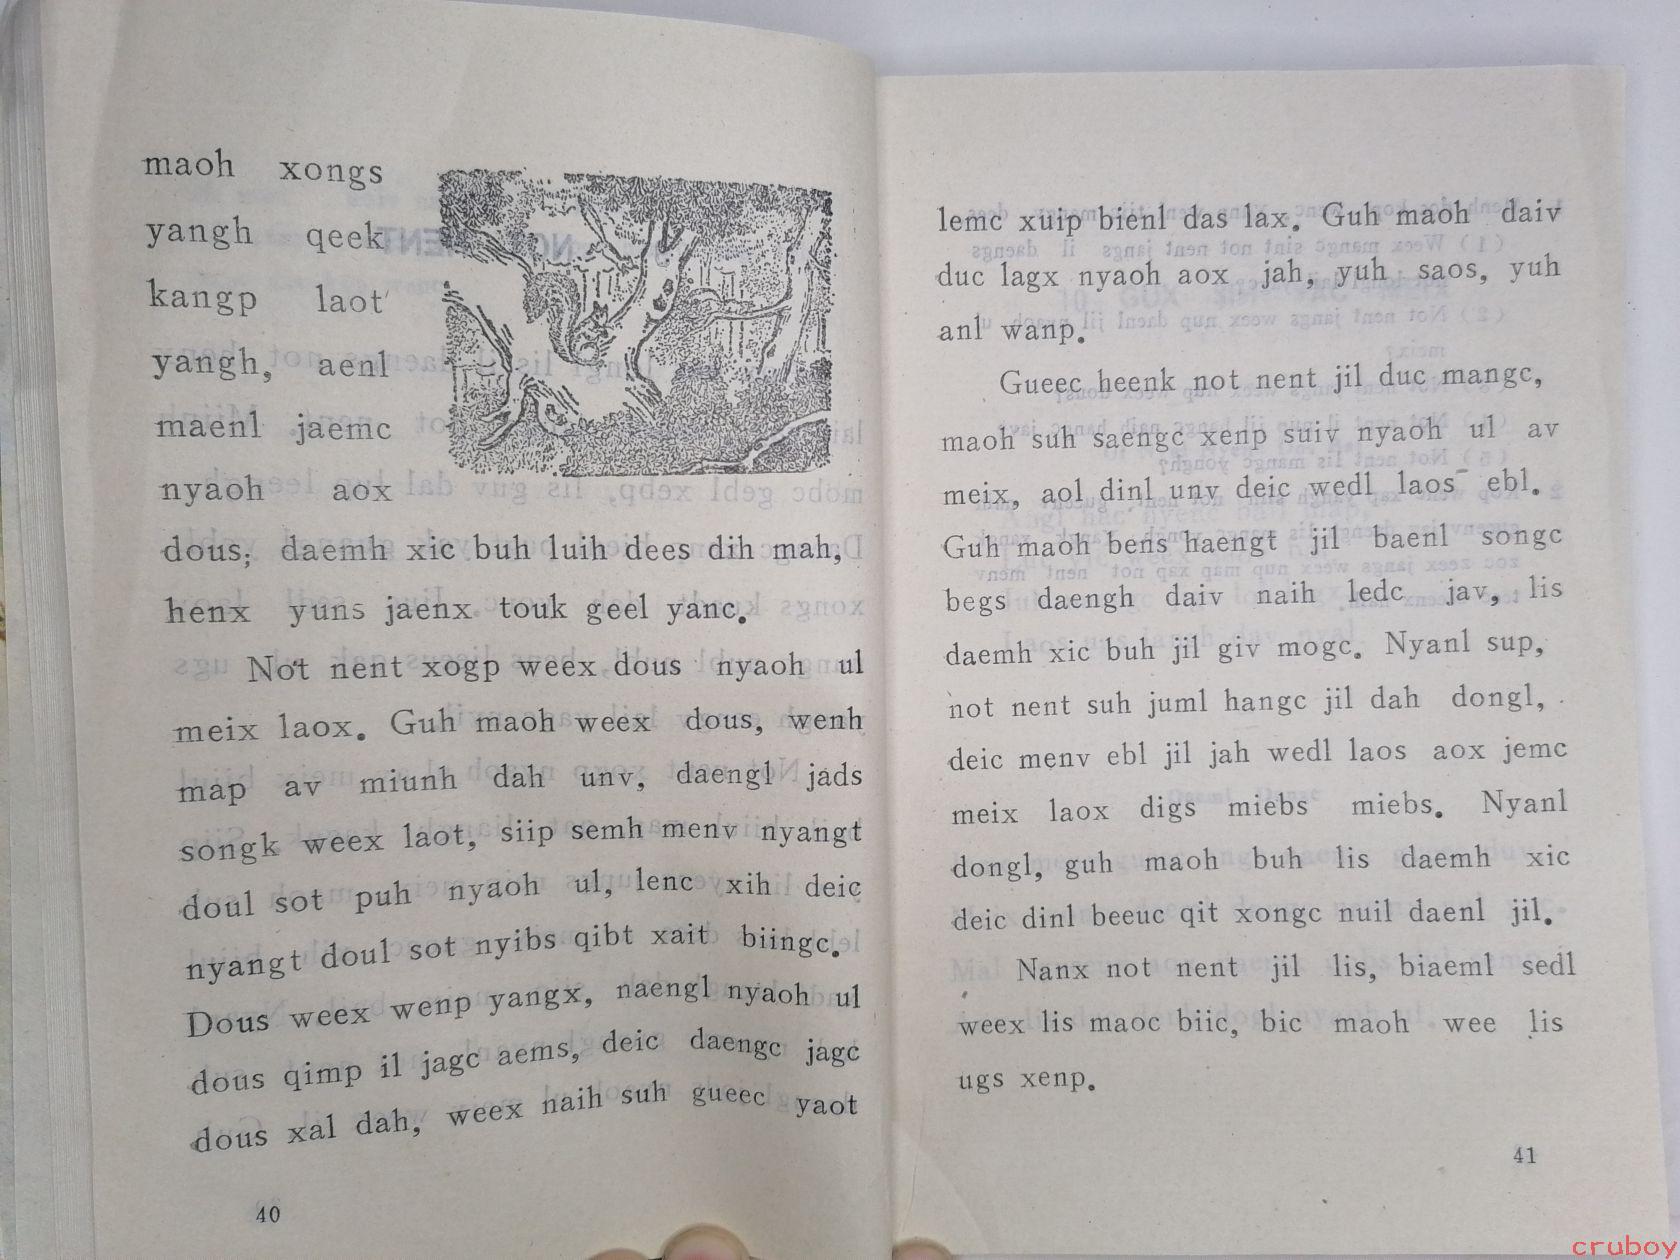 maoh xongs
yangh qeek
kangp laot
yangh, aenl
maenl jaemc
nyaoh aox
dous; daemh xic buh luih dees dih mah,
henx yuns jaenx touk geel yanc.
Not nent xogp weex dous nyaoh ul
meix laox. Guh maoh weex dous, wenh
map av miunh dah unv, daengl jads
songk weex laot, siip semh menv nyangt
doul sot puh nyaoh ul, lenc xih deic
nyangt doul sot nyibs qibt xait biingc.
Dous weex wenp yangx, naengl nyaoh ul
dous qimp il jagc aems, deic daengc jagc
dous xal dah, weex naih suh gueec yaot
40
lemc xuip bienl das lax. Guh maoh daiv
duc lagx nyaoh aox jah, yuh saos, yuh
anl wanp.
Gueec heenk not nent jil duc mangc,
maoh suh saengc xenp suiv nyaoh ul av
meix, aol dinl unv deic wedl laos ebl.
Guh maoh bens haengt jil baenl songc
begs daengh daiv naih ledc jav, lis
daemh xic buh jil giv mogc. Nyanl sup,
not nent suh juml hangc jil dah dongl,
deic menv ebl jil jah wedl laos aox jemc
meix laox digs miebs miebs. Nyanl
dongl, guh maoh buh lis daemh xic
deic dinl beeuc qit xongc nuil daenl jil.
Nanx not nent jil lis, biaeml sedl
weex lis maoc biic, bic maoh wee lis
ugs xenp.
41
cruboy